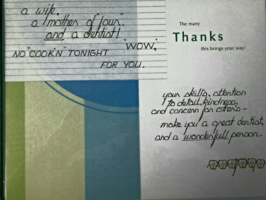 a wife,
a mother of four,
and a dentist!
WOW,
NO "COOK'N" TONIGHT
FOR YOU.
The many
Thanks
this brings your way!
your skills, attention
to detail, kindness,
and concern for others -
make you a great dentist,
and a wonderful person.